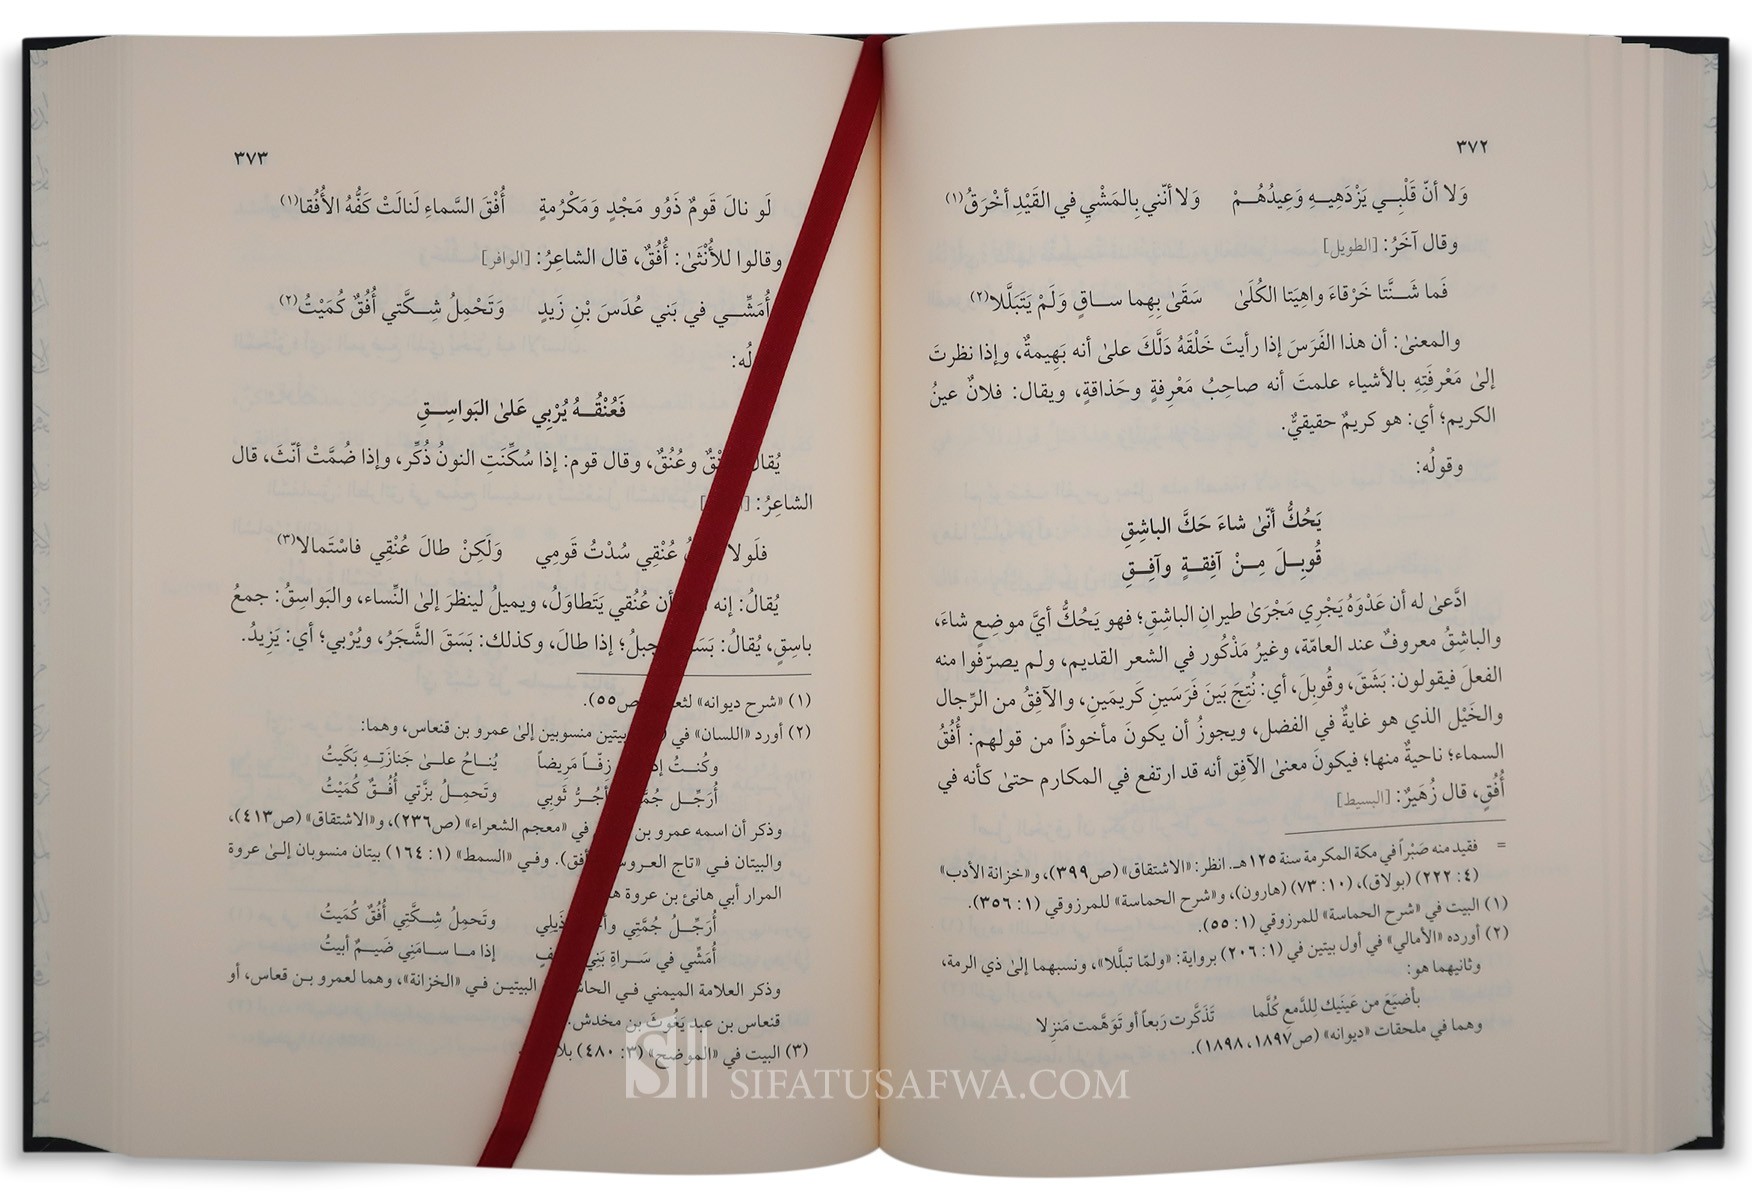 ٣٧٢
وَلا أنّ قَلْبِـي يَزْدَهِيـهِ وَعِيدُهُـمْ وَلا أنّني بِالمَشْيِ في القَيْدِ أخْرَقُ(١)
وقال آخَرُ: [الطويل]
فَما شَـنَّتا خَرْقاءَ واهِيَتا الكُلَىٰ سَقَىٰ بِهِما سـاقٍ وَلَمْ يَتَبَلَّلا(٢)
والمعنىٰ: أن هذا الفَرَسَ إذا رأيتَ خَلْقَهُ دَلَّكَ علىٰ أنه بَهِيمةٌ، وإذا نظرتَ
إلىٰ مَعْرِفَتِهِ بالأشياء علمتَ أنه صاحِبُ مَعْرِفةٍ وحَذاقةٍ، ويقال: فلانٌ عينُ
الكريم؛ أي: هو كريمٌ حقيقيٌّ.
وقولُه:
يَحُكُّ أنّىٰ شاءَ حَكَّ الباشِقِ
قُوبِـلَ مِـنْ آفِقـةٍ وآفِـقِ
ادَّعىٰ له أن عَدْوَهُ يَجْرِي مَجْرَىٰ طيرانِ الباشِقِ؛ فهو يَحُكُّ أيَّ موضِعٍ شاءَ،
والباشِقُ معروفٌ عند العامّة، وغيرُ مَذْكُور في الشعر القديم، ولم يصرّفوا منه
الفعلَ فيقولون: بَشَقَ، وقُوبِلَ، أي: نُتِجَ بَينَ فَرَسَينِ كَريمَينِ، والآفِقُ من الرِّجال
والخَيْل الذي هو غايةٌ في الفضل، ويجوزُ أن يكونَ مأخوذاً من قولهم: أُفُقُ
السماء؛ ناحيةٌ منها؛ فيكونَ معنىٰ الآفِق أنه قد ارتفع في المكارم حتىٰ كأنه في
أُفُقٍ، قال زُهَيرٌ: [البسيط]
= فقيد منه صَبْراً في مكة المكرمة سنة ١٢٥هـ. انظر: «الاشتقاق» (ص٣٩٩)، و«خزانة الأدب»
(٤: ٢٢٢) (بولاق)، (١٠: ٧٣) (هارون)، و«شرح الحماسة» للمرزوقي (١: ٣٥٦).
(١) البيت في «شرح الحماسة» للمرزوقي (١: ٥٥).
(٢) أورده «الأمالي» في أول بيتين في (١: ٢٠٦) برواية: «ولمّا تبلّلا»، ونسبهما إلىٰ ذي الرمة،
وثانيهما هو:
بأضيَعَ من عَينَيك لِلدَّمعِ كُلَّما تَذَكَّرت رَبعاً أو تَوَهَّمت مَنزِلا
وهما في ملحقات «ديوانه» (ص١٨٩٧، ١٨٩٨).
٣٧٣
لَو نالَ قَومٌ ذَوُو مَجْدٍ وَمَكْرُمةٍ أُفْقَ السَّماءِ لَنالَتْ كَفُّهُ الأُفُقا(١)
وقالوا للأُنْثَىٰ: أُفُقٌ، قال الشاعِرُ: [الوافر]
أُمَشِّـي في بَني عُدَسَ بْنِ زَيدٍ وَتَحْمِلُ شِـكَّتي أُفُقٌ كُمَيْتُ(٢)
لُه:
فَعُنْقُـهُ يُرْبِي عَلىٰ البَواسِـقِ
يُقالُ نْقٌ وعُنُقٌ، وقال قوم: إذا سُكِّنَتِ النونُ ذُكِّر، وإذا ضُمَّتْ أنّثَ، قال
الشاعِرُ:
فلَولا عُنْقِي سُدْتُ قَومِي وَلَكِنْ طالَ عُنْقِي فاسْتَمالا(٣)
يُقالُ: إنه أن عُنُقي يَتَطاوَلُ، ويميلُ لينظرَ إلىٰ النِّساء، والبَواسِقُ: جمعُ
باسِقٍ، يُقالُ: بَسَقَ جبلُ؛ إذا طالَ، وكذلك: بَسَقَ الشَّجَرُ، ويُرْبي؛ أي: يَزِيدُ.
(١) «شرح ديوانه» لثعلب ص٥٥).
(٢) أورد «اللسان» في بيتين منسوبين إلىٰ عمرو بن قنعاس، وهما:
وكُنـتُ إذا زِقّـاً مَرِيضاً يُناحُ علىٰ جَنازَتِـهِ بَكَيتُ
أُرَجِّـل جُمَّتِي أجُرُّ ثَوبِي وتَحمِـلُ بِزَّتي أُفُـقٌ كُمَيْتُ
وذكر أن اسمه عمرو بن في «معجم الشعراء» (ص٢٣٦)، و«الاشتقاق» (ص٤١٣)،
والبيتان فـي «تاج العـروس» أفق). وفـي «السمط» (١: ١٦٤) بيتان منسوبان إلـىٰ عروة
المرار أبي هانئ بن عروة
أُرَجِّـلُ جُمَّتِي ذَيلِي وتَحمِلُ شِـكَّتِي أُفُقٌ كُمَيتُ
أُمَشِّي في سَـراةِ بَنِي يفٍ إذا مـا سـامَنِي ضَيـمٌ أبيتُ
وذكر العلامة الميمني فـي البيتيـن فـي «الخزانة»، وهما لعمرو بـن قعاس، أو
قنعاس بن عبد يَغُوثَ بن مخدش.
(٣) البيت في «الموضح» (٣: ٤٨٠)
SIFATUSAFWA.COM